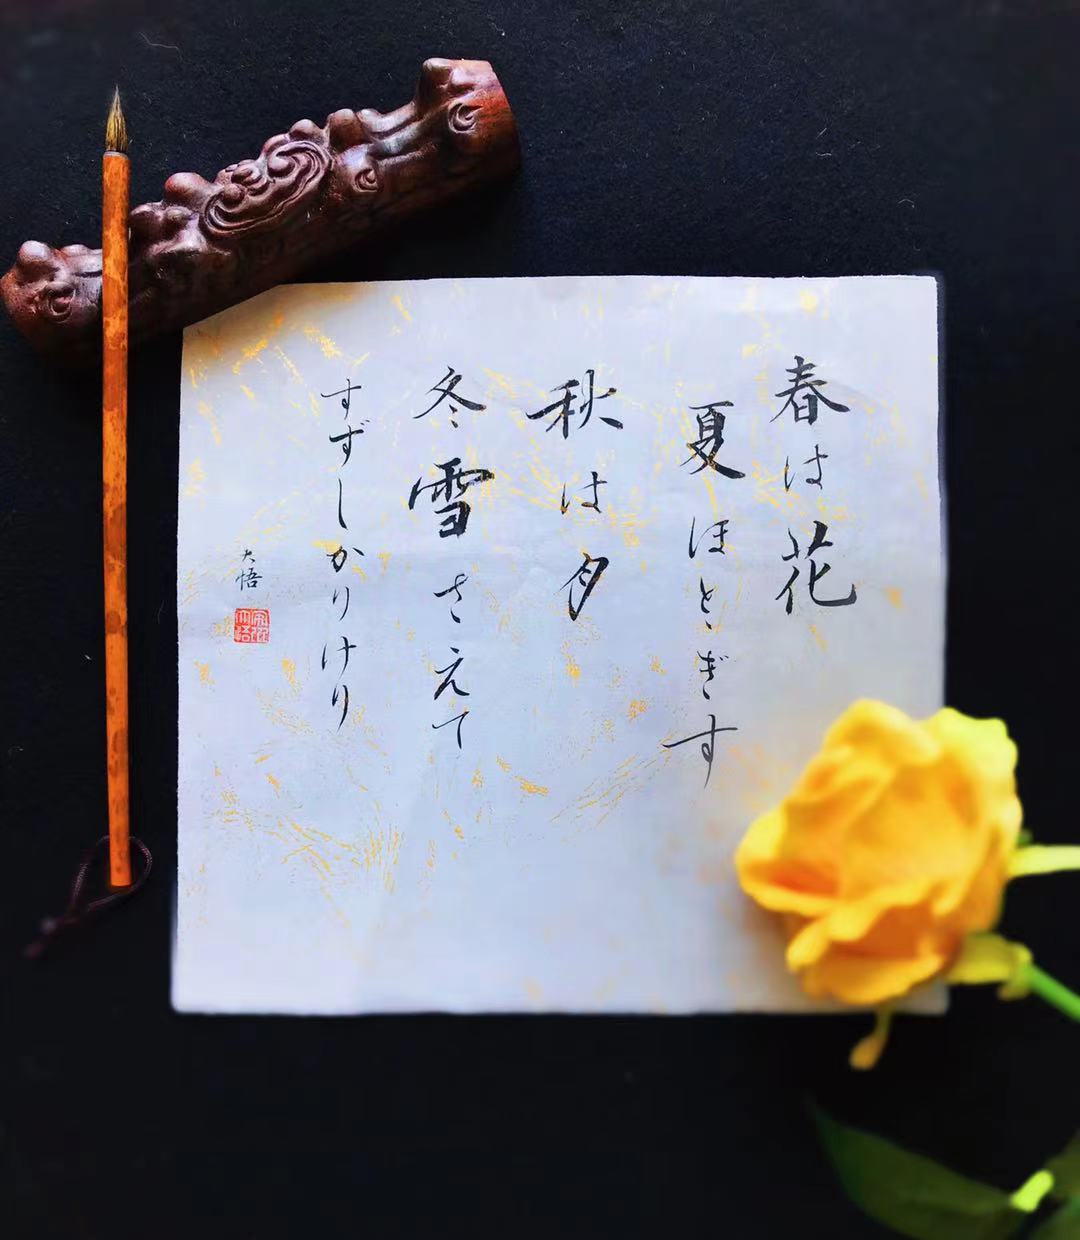 春は花
夏ほとぎす
秋は月
冬雪さえて
すずしかりけり
大悟